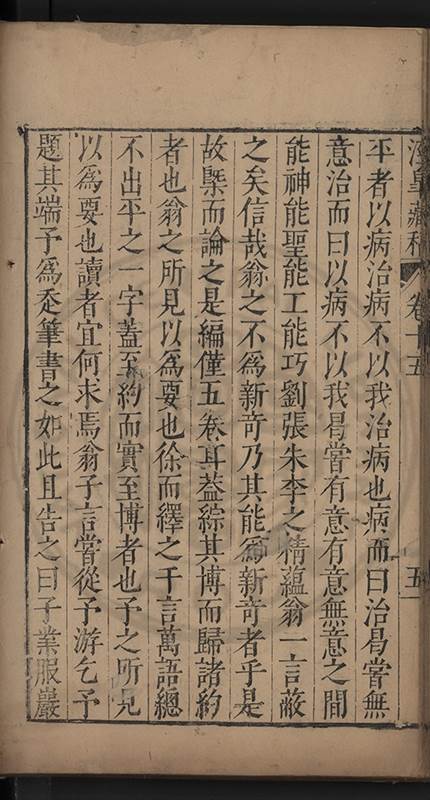 涇臯藏稿 卷十五 五
平者以病治病不以我治病也病而曰治曷嘗無
意治而曰以病不以我曷嘗有意有意無意之間
能神能聖能工能巧劉張朱李之精蘊翁一言蔽
之矣信哉翁之不爲新竒乃其能爲新竒者乎是
故槩而論之是編僅五卷耳葢綜其博而歸諸約
者也翁之所見以爲要也徐而繹之千言萬語總
不出平之一字蓋至約而實至博者也予之所見
以爲要也讀者宜何求焉翁子言嘗從予游乞予
題其端予爲走筆書之如此且告之曰子業服巖